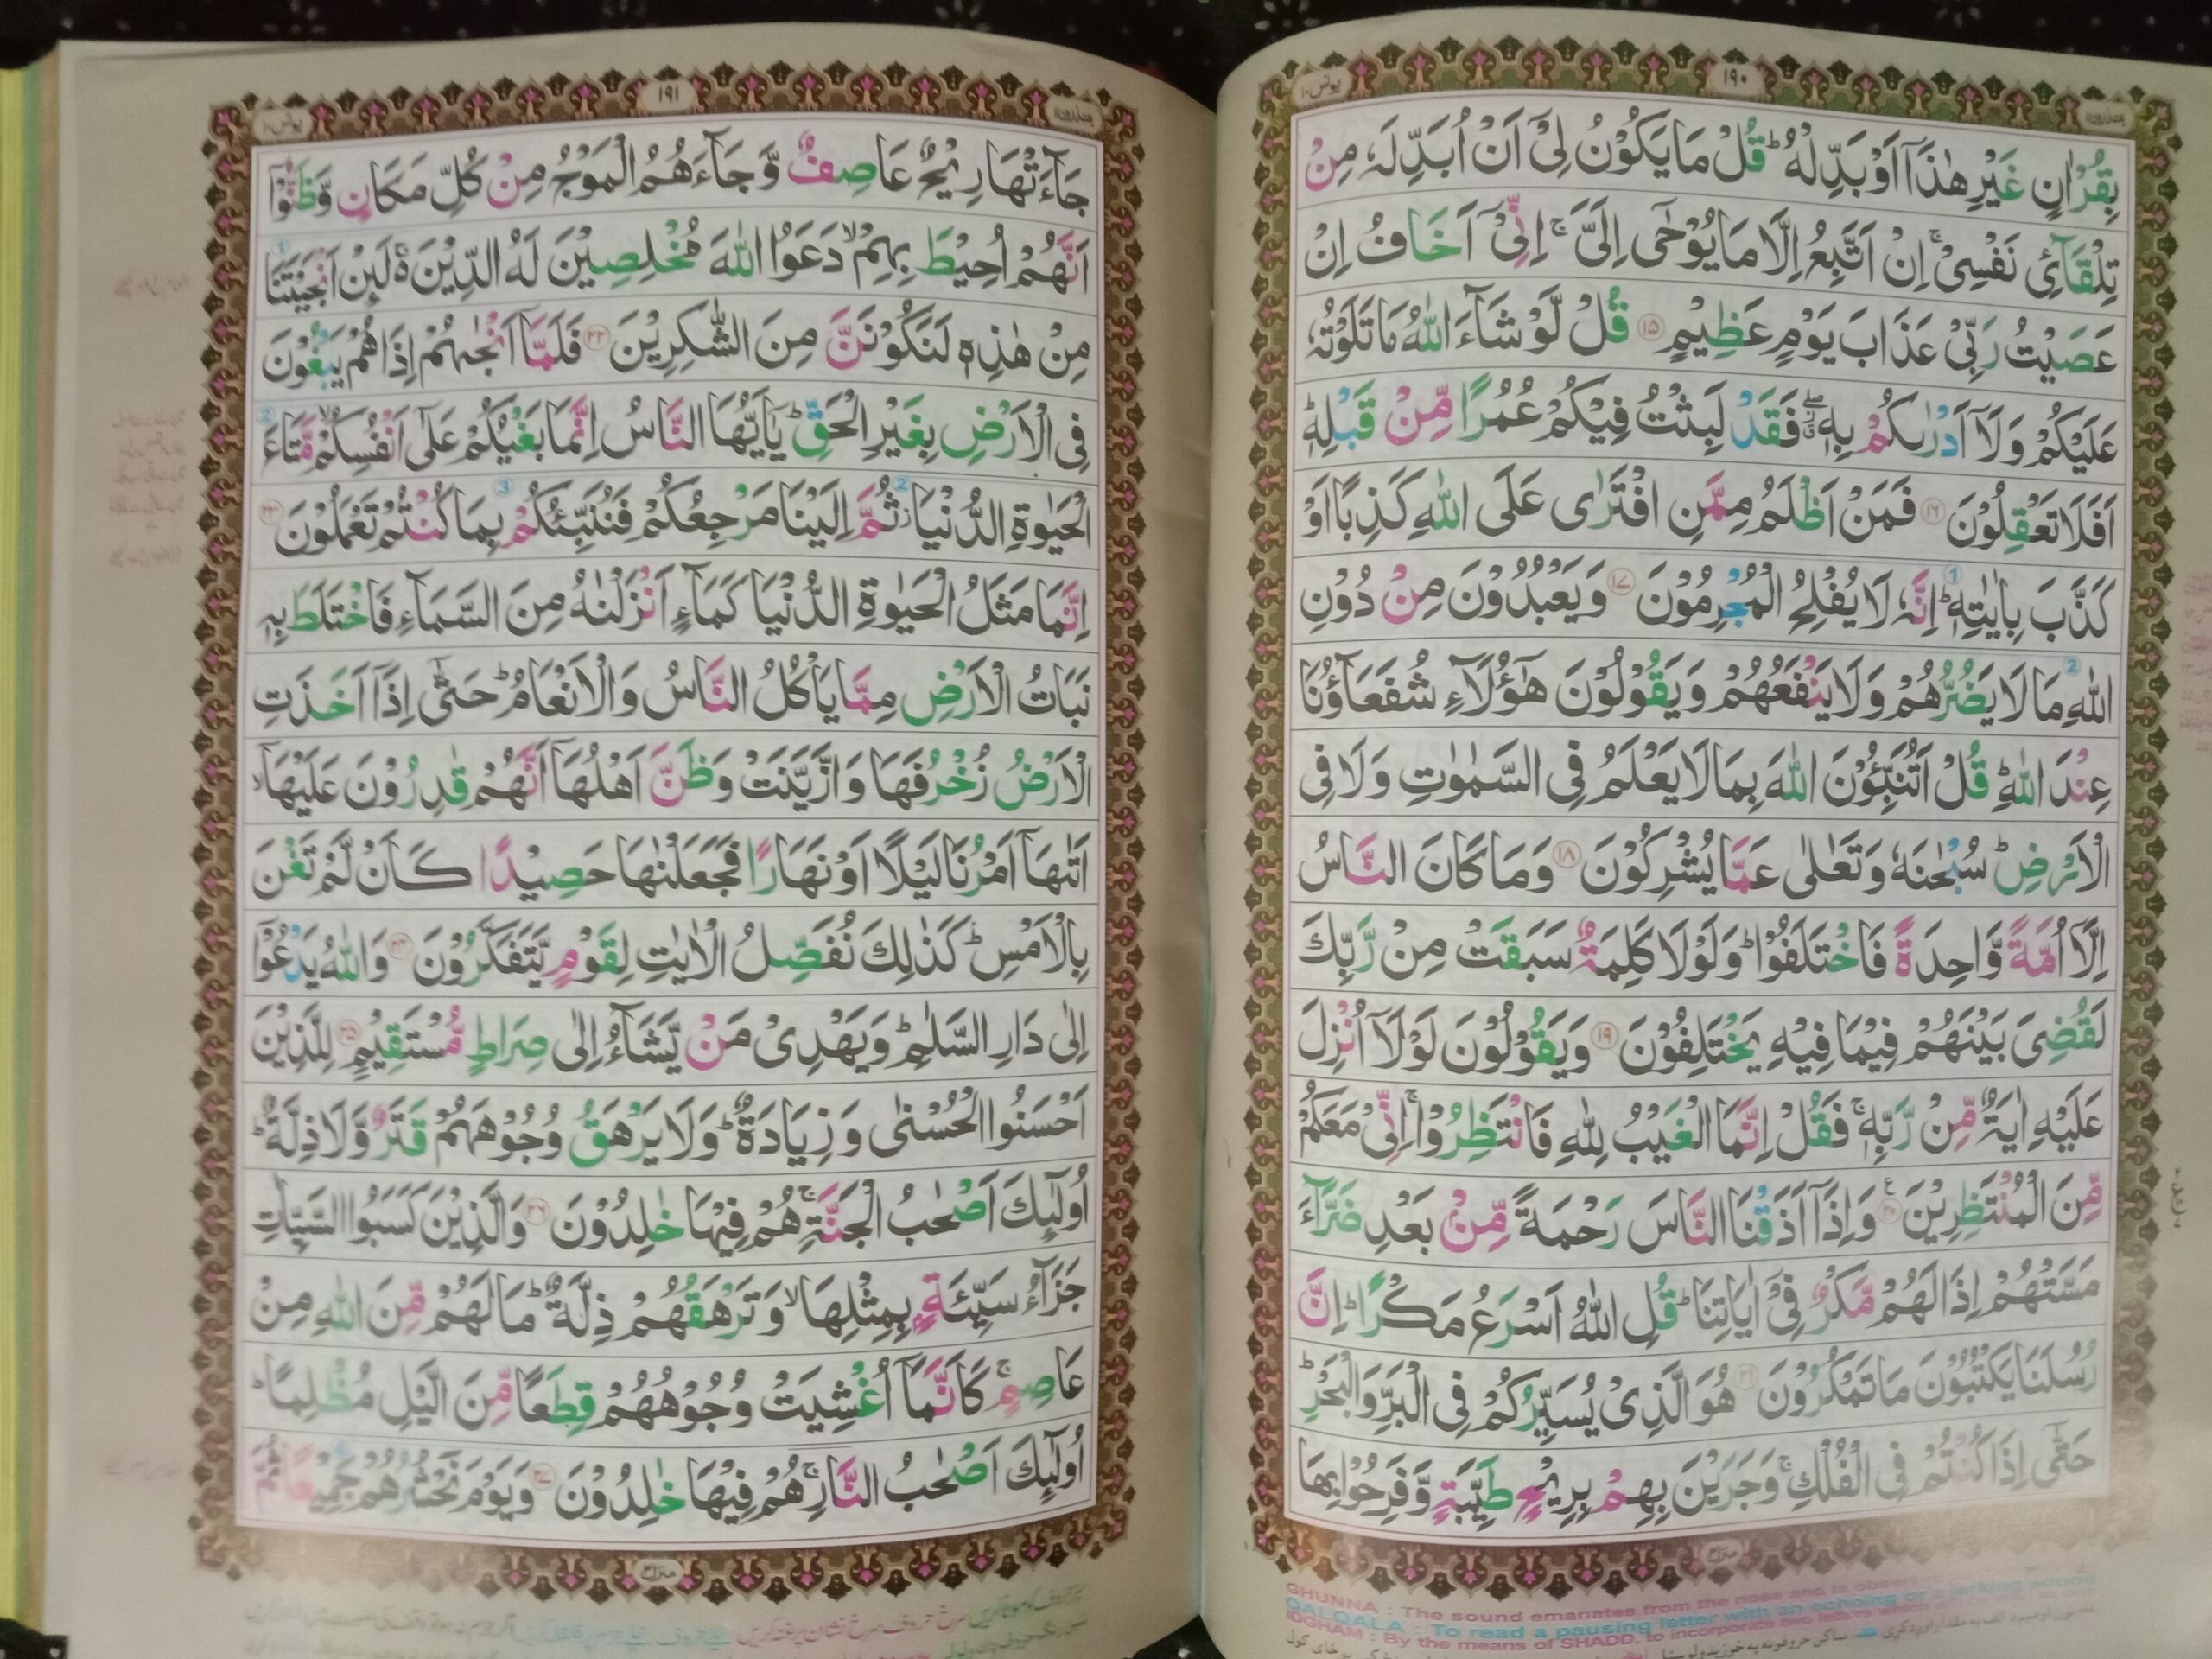 یونس ۱۰
۱۹۰
یعتذرون ۱۱
بِقُرْاٰنٍ غَیْرِ هٰذَاۤ اَوْ بَدِّلْهُ ؕ قُلْ مَا یَكُوْنُ لِیْۤ اَنْ اُبَدِّلَهٗ مِنْ
تِلْقَآئِ نَفْسِیْ ۚ اِنْ اَتَّبِعُ اِلَّا مَا یُوْحٰۤی اِلَیَّ ۚ اِنِّیْۤ اَخَافُ اِنْ
عَصَیْتُ رَبِّیْ عَذَابَ یَوْمٍ عَظِیْمٍ ۱۵ قُلْ لَّوْ شَآءَ اللّٰهُ مَا تَلَوْتُهٗ
عَلَیْكُمْ وَلَاۤ اَدْرٰىكُمْ بِهٖ ۖ فَقَدْ لَبِثْتُ فِیْكُمْ عُمُرًا مِّنْ قَبْلِهٖ ؕ
اَفَلَا تَعْقِلُوْنَ ۱۶ فَمَنْ اَظْلَمُ مِمَّنِ افْتَرٰی عَلَی اللّٰهِ كَذِبًا اَوْ
كَذَّبَ بِاٰیٰتِهٖ ؕ اِنَّهٗ لَا یُفْلِحُ الْمُجْرِمُوْنَ ۱۷ وَیَعْبُدُوْنَ مِنْ دُوْنِ
اللّٰهِ مَا لَا یَضُرُّهُمْ وَلَا یَنْفَعُهُمْ وَیَقُوْلُوْنَ هٰۤؤُلَآءِ شُفَعَآؤُنَا
عِنْدَ اللّٰهِ ؕ قُلْ اَتُنَبِّئُوْنَ اللّٰهَ بِمَا لَا یَعْلَمُ فِی السَّمٰوٰتِ وَلَا فِی
الْاَرْضِ ؕ سُبْحٰنَهٗ وَتَعٰلٰی عَمَّا یُشْرِكُوْنَ ۱۸ وَمَا كَانَ النَّاسُ
اِلَّاۤ اُمَّةً وَّاحِدَةً فَاخْتَلَفُوْا ؕ وَلَوْلَا كَلِمَةٌ سَبَقَتْ مِنْ رَّبِّكَ
لَقُضِیَ بَیْنَهُمْ فِیْمَا فِیْهِ یَخْتَلِفُوْنَ ۱۹ وَیَقُوْلُوْنَ لَوْلَاۤ اُنْزِلَ
عَلَیْهِ اٰیَةٌ مِّنْ رَّبِّهٖ ۚ فَقُلْ اِنَّمَا الْغَیْبُ لِلّٰهِ فَانْتَظِرُوْا ۚ اِنِّیْ مَعَكُمْ
مِّنَ الْمُنْتَظِرِیْنَ ۲۰ وَاِذَاۤ اَذَقْنَا النَّاسَ رَحْمَةً مِّنْۢ بَعْدِ ضَرَّآءَ
مَسَّتْهُمْ اِذَا لَهُمْ مَّكْرٌ فِیْۤ اٰیَاتِنَا ؕ قُلِ اللّٰهُ اَسْرَعُ مَكْرًا ؕ اِنَّ
رُسُلَنَا یَكْتُبُوْنَ مَا تَمْكُرُوْنَ ۲۱ هُوَ الَّذِیْ یُسَیِّرُكُمْ فِی الْبَرِّ وَالْبَحْرِ ؕ
حَتّٰۤی اِذَا كُنْتُمْ فِی الْفُلْكِ ۚ وَجَرَیْنَ بِهِمْ بِرِیْحٍ طَیِّبَةٍ وَّفَرِحُوْا بِهَا
GHUNNA : The sound emanates from the nose and is observed
QALQALA : To read a pausing letter with an echoing or a jerking sound
IDGHAM : By the means of SHADD, to incorporate two letters which
یونس ۱۰
۱۹۱
یعتذرون ۱۱
جَآءَتْهَا رِیْحٌ عَاصِفٌ وَّجَآءَهُمُ الْمَوْجُ مِنْ كُلِّ مَكَانٍ وَّظَنُّوْۤا
اَنَّهُمْ اُحِیْطَ بِهِمْ ۙ دَعَوُا اللّٰهَ مُخْلِصِیْنَ لَهُ الدِّیْنَ ۚ۬ لَئِنْ اَنْجَیْتَنَا
مِنْ هٰذِهٖ لَنَكُوْنَنَّ مِنَ الشّٰكِرِیْنَ ۲۲ فَلَمَّاۤ اَنْجٰىهُمْ اِذَا هُمْ یَبْغُوْنَ
فِی الْاَرْضِ بِغَیْرِ الْحَقِّ ؕ یٰۤاَیُّهَا النَّاسُ اِنَّمَا بَغْیُكُمْ عَلٰۤی اَنْفُسِكُمْ ۙ مَّتَاعَ
الْحَیٰوةِ الدُّنْیَا ؗ ثُمَّ اِلَیْنَا مَرْجِعُكُمْ فَنُنَبِّئُكُمْ بِمَا كُنْتُمْ تَعْمَلُوْنَ ۲۳
اِنَّمَا مَثَلُ الْحَیٰوةِ الدُّنْیَا كَمَآءٍ اَنْزَلْنٰهُ مِنَ السَّمَآءِ فَاخْتَلَطَ بِهٖ
نَبَاتُ الْاَرْضِ مِمَّا یَاْكُلُ النَّاسُ وَالْاَنْعَامُ ؕ حَتّٰۤی اِذَاۤ اَخَذَتِ
الْاَرْضُ زُخْرُفَهَا وَازَّیَّنَتْ وَظَنَّ اَهْلُهَاۤ اَنَّهُمْ قٰدِرُوْنَ عَلَیْهَاۤ ۙ
اَتٰىهَاۤ اَمْرُنَا لَیْلًا اَوْ نَهَارًا فَجَعَلْنٰهَا حَصِیْدًا كَاَنْ لَّمْ تَغْنَ
بِالْاَمْسِ ؕ كَذٰلِكَ نُفَصِّلُ الْاٰیٰتِ لِقَوْمٍ یَّتَفَكَّرُوْنَ ۲۴ وَاللّٰهُ یَدْعُوْۤا
اِلٰی دَارِ السَّلٰمِ ؕ وَیَهْدِیْ مَنْ یَّشَآءُ اِلٰی صِرَاطٍ مُّسْتَقِیْمٍ ۲۵ لِلَّذِیْنَ
اَحْسَنُوا الْحُسْنٰی وَزِیَادَةٌ ؕ وَلَا یَرْهَقُ وُجُوْهَهُمْ قَتَرٌ وَّلَا ذِلَّةٌ ؕ
اُولٰٓئِكَ اَصْحٰبُ الْجَنَّةِ ۚ هُمْ فِیْهَا خٰلِدُوْنَ ۲۶ وَالَّذِیْنَ كَسَبُوا السَّیِّاٰتِ
جَزَآءُ سَیِّئَةٍۭ بِمِثْلِهَا ۙ وَتَرْهَقُهُمْ ذِلَّةٌ ؕ مَا لَهُمْ مِّنَ اللّٰهِ مِنْ
عَاصِمٍ ۚ كَاَنَّمَاۤ اُغْشِیَتْ وُجُوْهُهُمْ قِطَعًا مِّنَ الَّیْلِ مُظْلِمًا ؕ
اُولٰٓئِكَ اَصْحٰبُ النَّارِ ۚ هُمْ فِیْهَا خٰلِدُوْنَ ۲۷ وَیَوْمَ نَحْشُرُهُمْ جَمِیْعًا ثُمَّ